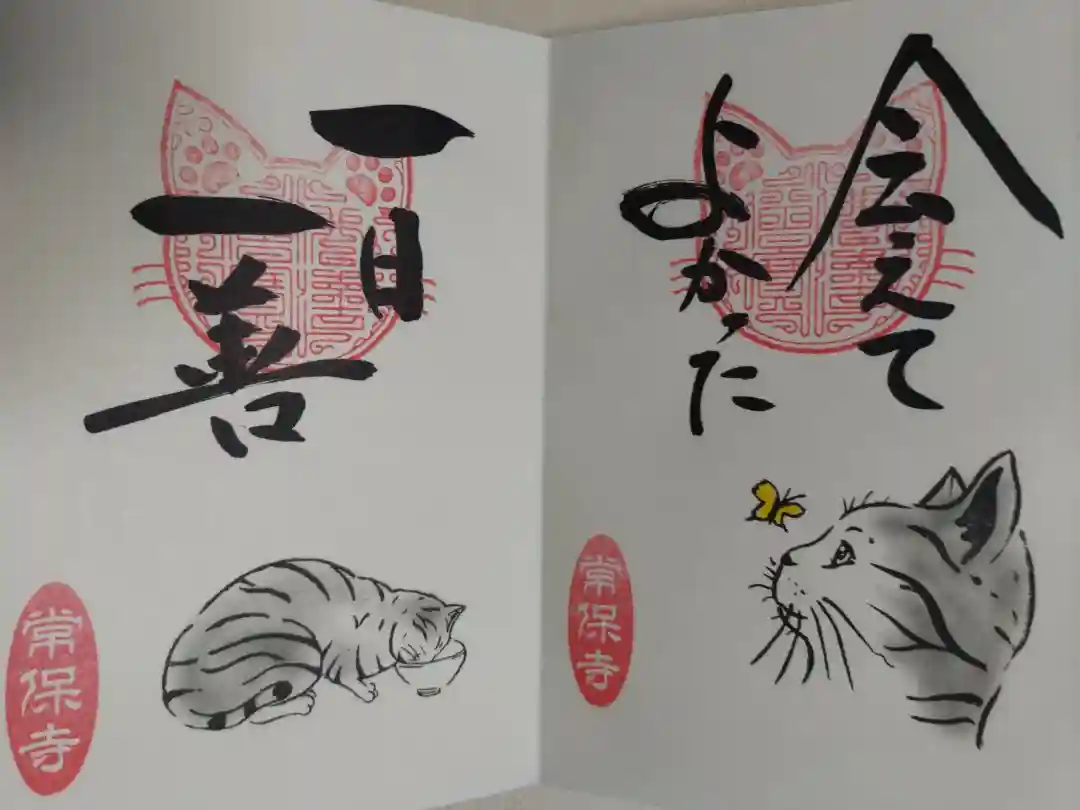 会えて
よかった
常保寺
一日
一善
常保寺